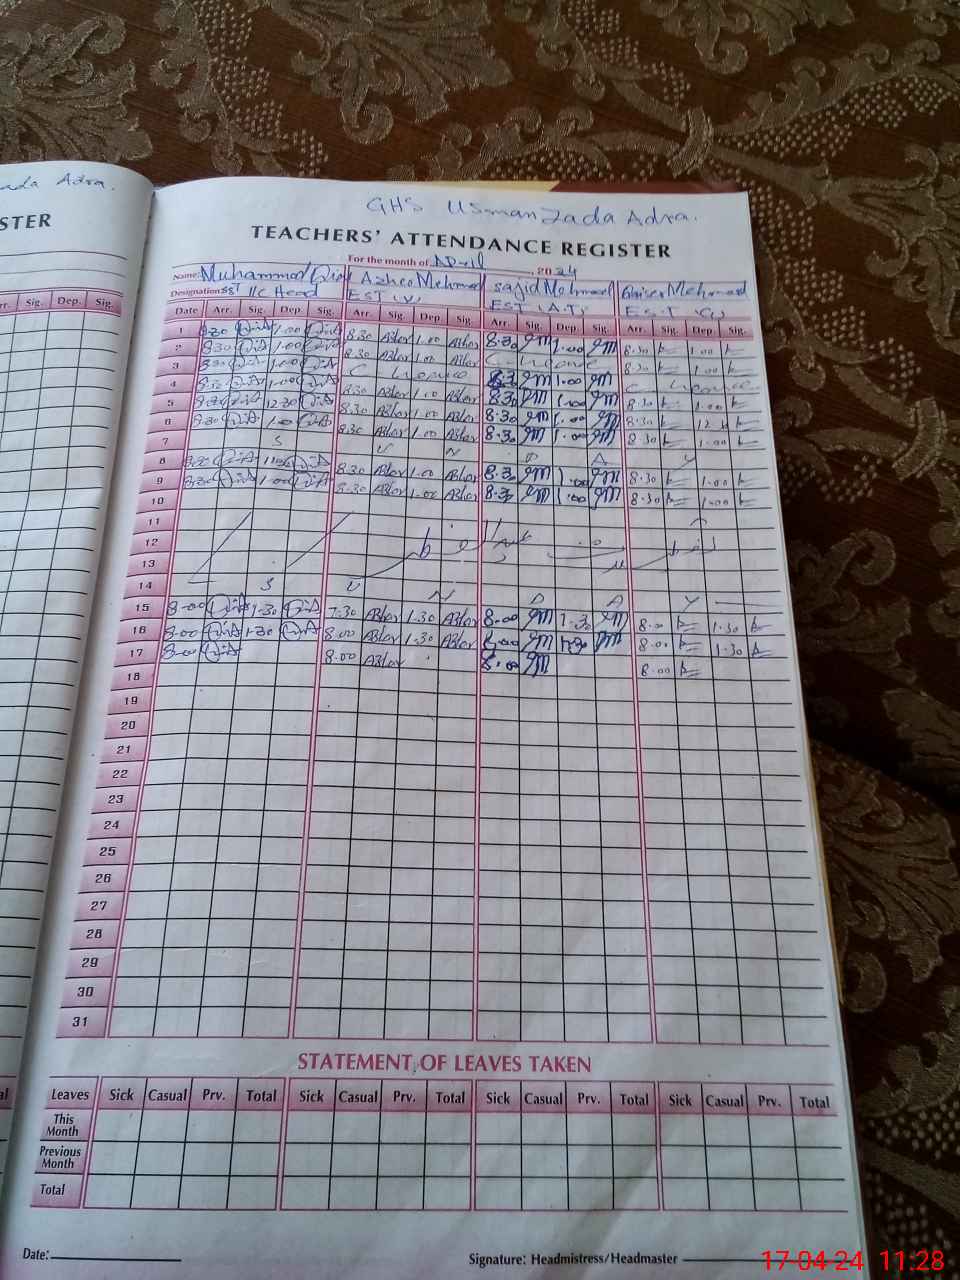 ada Adra.
STER
Arr. Sig. Dep. Sig.
GHS Usman Zada Adra.
TEACHERS' ATTENDANCE REGISTER
For the month of April, 2024
Name: Muhammad Azher Mehmood Sajid Mehmood Qaiser Mehmood
Designation: SST I/C Head EST EST (A.T) EST
Date Arr. Sig. Dep. Sig. Arr. Sig. Dep. Sig. Arr. Sig. Dep. Sig. Arr. Sig. Dep. Sig.
1 8.30 1.00 8.30 Azher 1.00 Azher 8.30 1.00 8.30 1.00
2 8.30 1.00 8.30 Azher 1.00 Azher C. Leave 8.30 1.00
3 8.30 1.00 C Leave 8.30 1.00 C Leave
4 8.30 1.00 8.30 Azher 1.00 Azher 8.30 1.00 8.30 1.00
5 8.30 12.30 8.30 Azher 1.00 Azher 8.30 1.00 8.30
6 8.30 1.00 8.30 Azher 1.00 Azher 8.30 1.00 8.30 1.00
7 S U N D A Y
8 8.30 1.00 8.30 Azher 1.00 Azher 8.30 1.00 8.30 1.00
9 8.30 1.00 8.30 Azher 1.00 Azher 8.30 1.00 8.30 1.00
10
11
12
13
14 S U N D A Y
15 8.00 1.30 7.30 Azher 1.30 Azher 8.00 1.30 8.00 1.30
16 8.00 1.30 8.00 Azher 1.30 Azher 8.00 1.30 8.00 1.30
17 8.00 8.00 Azher 8.00 8.00
18
19
20
21
22
23
24
25
26
27
28
29
30
31
STATEMENT OF LEAVES TAKEN
Leaves Sick Casual Prv. Total Sick Casual Prv. Total Sick Casual Prv. Total Sick Casual Prv. Total
This
Month
Previous
Month
Total
Date: Signature: Headmistress/Headmaster
17-04-24 11:28